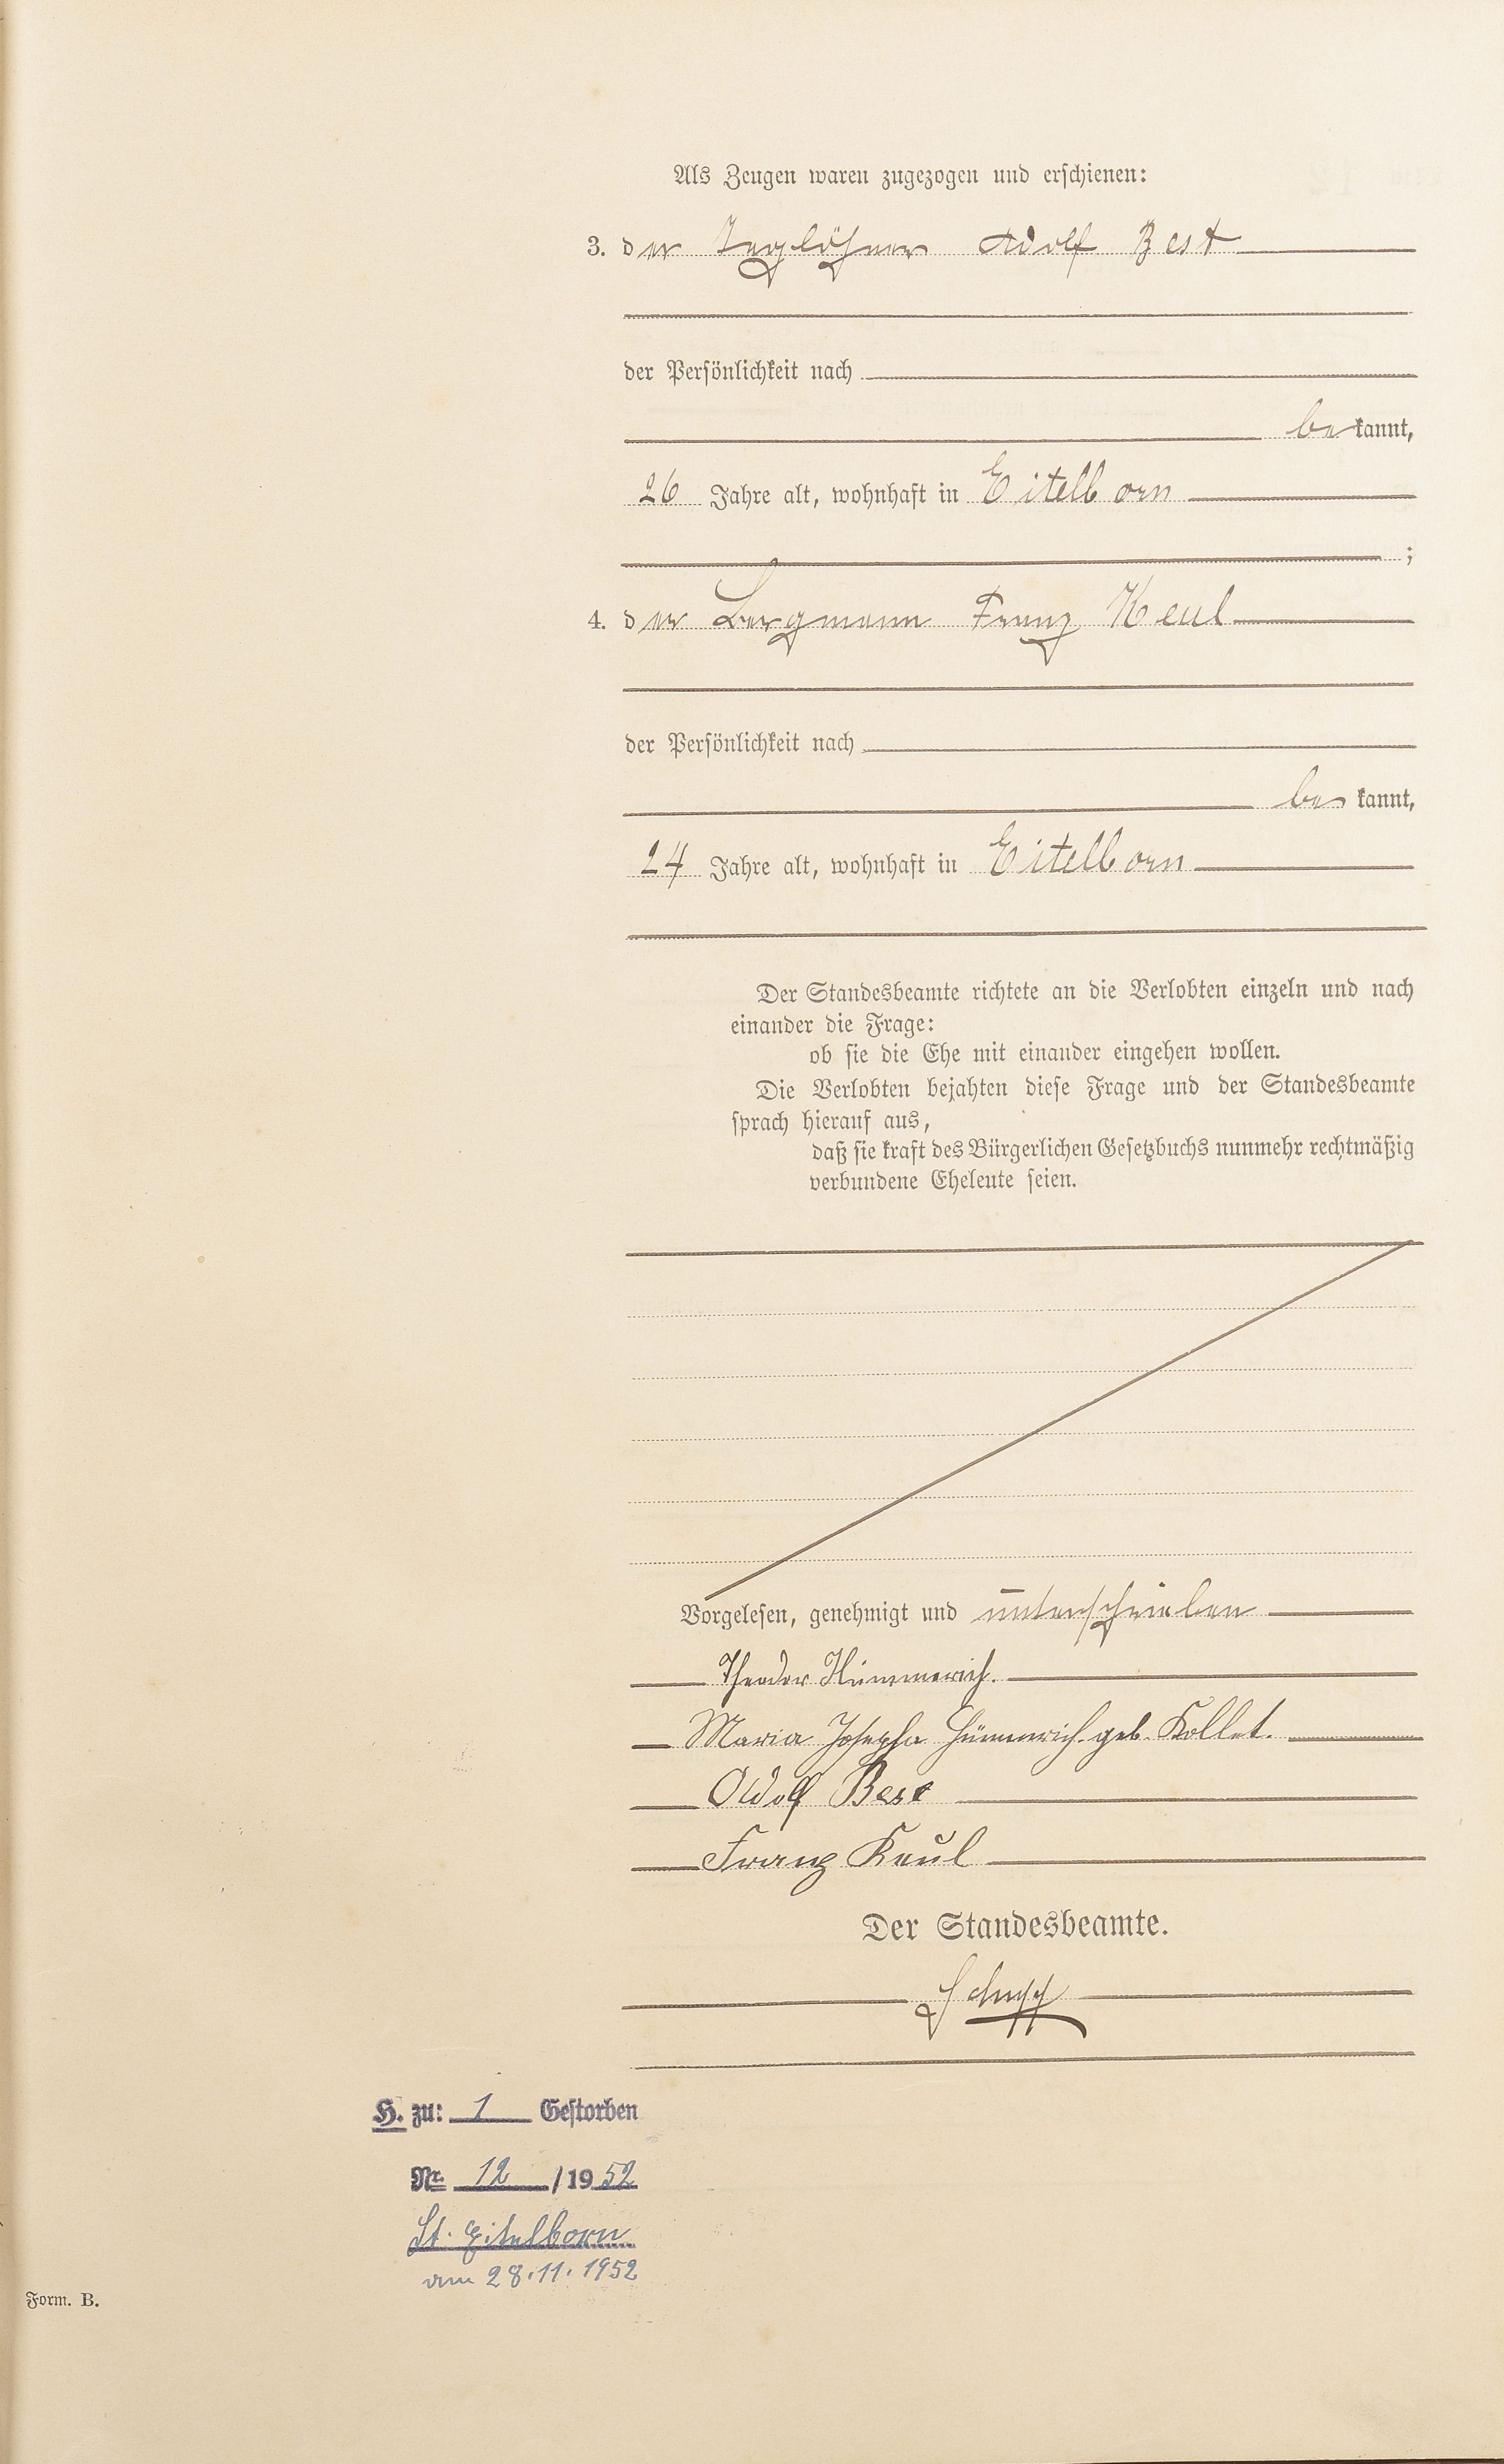 Als Zeugen waren zugezogen und erschienen:
3. der Taglöhner Adolf Best
der Persönlichkeit nach
bekannt,
26 Jahre alt, wohnhaft in Eitelborn
;
4. der Bergmann Franz Keul
der Persönlichkeit nach
bekannt,
24 Jahre alt, wohnhaft in Eitelborn
Der Standesbeamte richtete an die Verlobten einzeln und nach
einander die Frage:
ob sie die Ehe mit einander eingehen wollen.
Die Verlobten bejahten diese Frage und der Standesbeamte
sprach hierauf aus,
daß sie kraft des Bürgerlichen Gesetzbuchs nunmehr rechtmäßig
verbundene Eheleute seien.
Vorgelesen, genehmigt und unterschrieben
Theodor Hümmerich.
Maria Josepha Hümmerich geb. Kollet.
Adolf Best
Franz Keul
Der Standesbeamte.
Schupp
H. zu: 1 Gestorben
Nr. 12 /1952
St. Eitelborn
am 28.11.1952
Form. B.